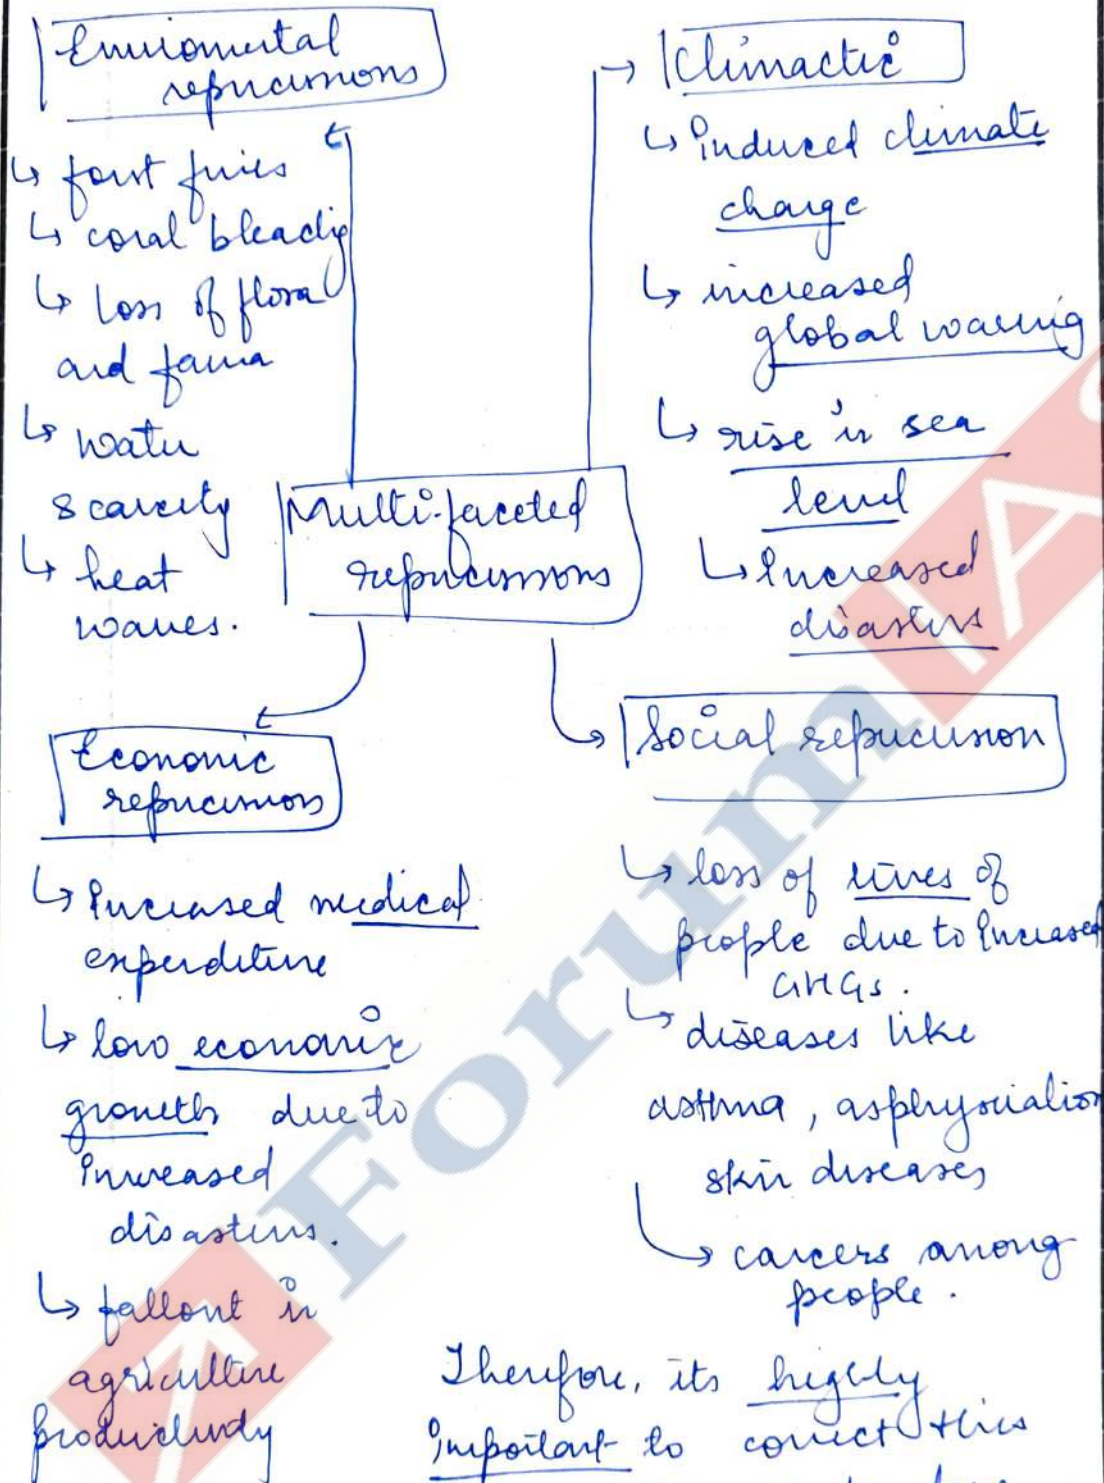 Enviromental
repucussions
↳ forst fires
↳ coral bleachig
↳ loss of flora
and fauna
↳ water
scarcity
↳ heat
waves.
→ Climactic
↳ Induced climate
change
↳ increased
global warmig
↳ rise in sea
level
↳ Increased
disasters
Multi-faceted
repucussions
Economic
repucussions
↳ Increased medical
expenditure
↳ low economic
growth due to
increased
disasters.
↳ fallout in
agriculture
Social repucussion
↳ loss of lives of
people due to Increased
GHGs.
↳ diseases like
asthma, asphyxiation
skin diseases
↳ cancers among
people.
Therefore, its highly
important to correct this
Forum IAS